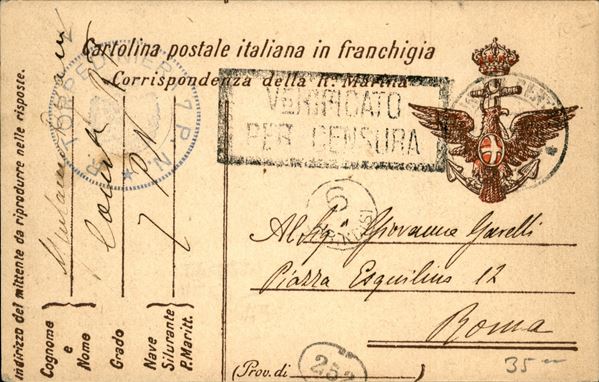 Cartolina postale italiana in franchigia
Corrispondenza della R. Marina
VERIFICATO
PER CENSURA
R. TORPEDINIERA 7 P.N.
Indirizzo del mittente da riprodurre nelle risposte.
Cognome
e
Nome
Grado
Nave
Silurante
P. Maritt.
7 PN
Al Sig. Giovanna Garelli
Piazza Esquilino 12
Roma
(Prov. di
252
35